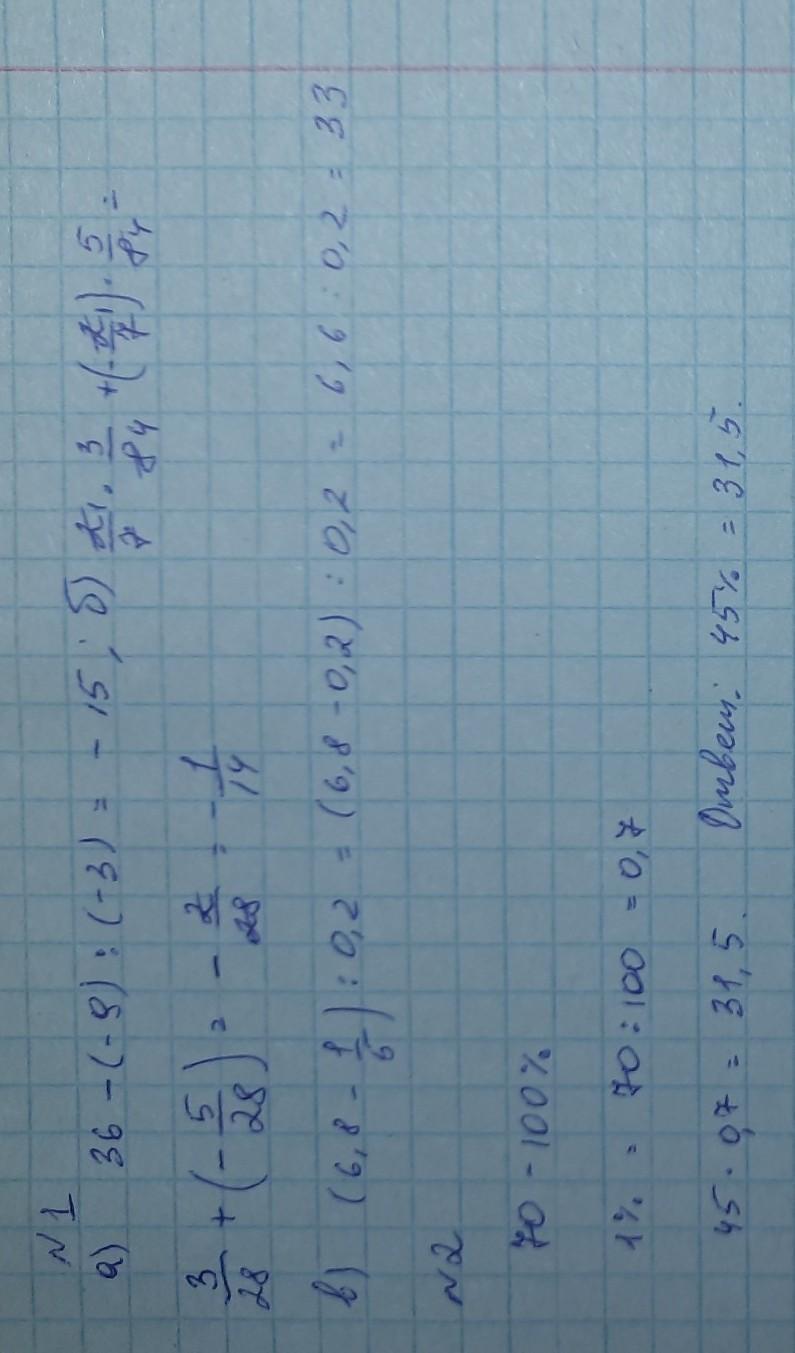 N 1
а) 36 - (-9) : (-3) = - 15 ; б) 2/7 1 · 3/84 + (- 2/7 1) · 5/84 =
3/28 + (- 5/28) = - 2/28 = - 1/14
в) (6,8 - 1/6) : 0,2 = (6,8 - 0,2) : 0,2 = 6,6 : 0,2 = 33
N 2
70 - 100%
1% = 70 : 100 = 0,7
45 · 0,7 = 31,5. Ответ: 45% = 31,5.